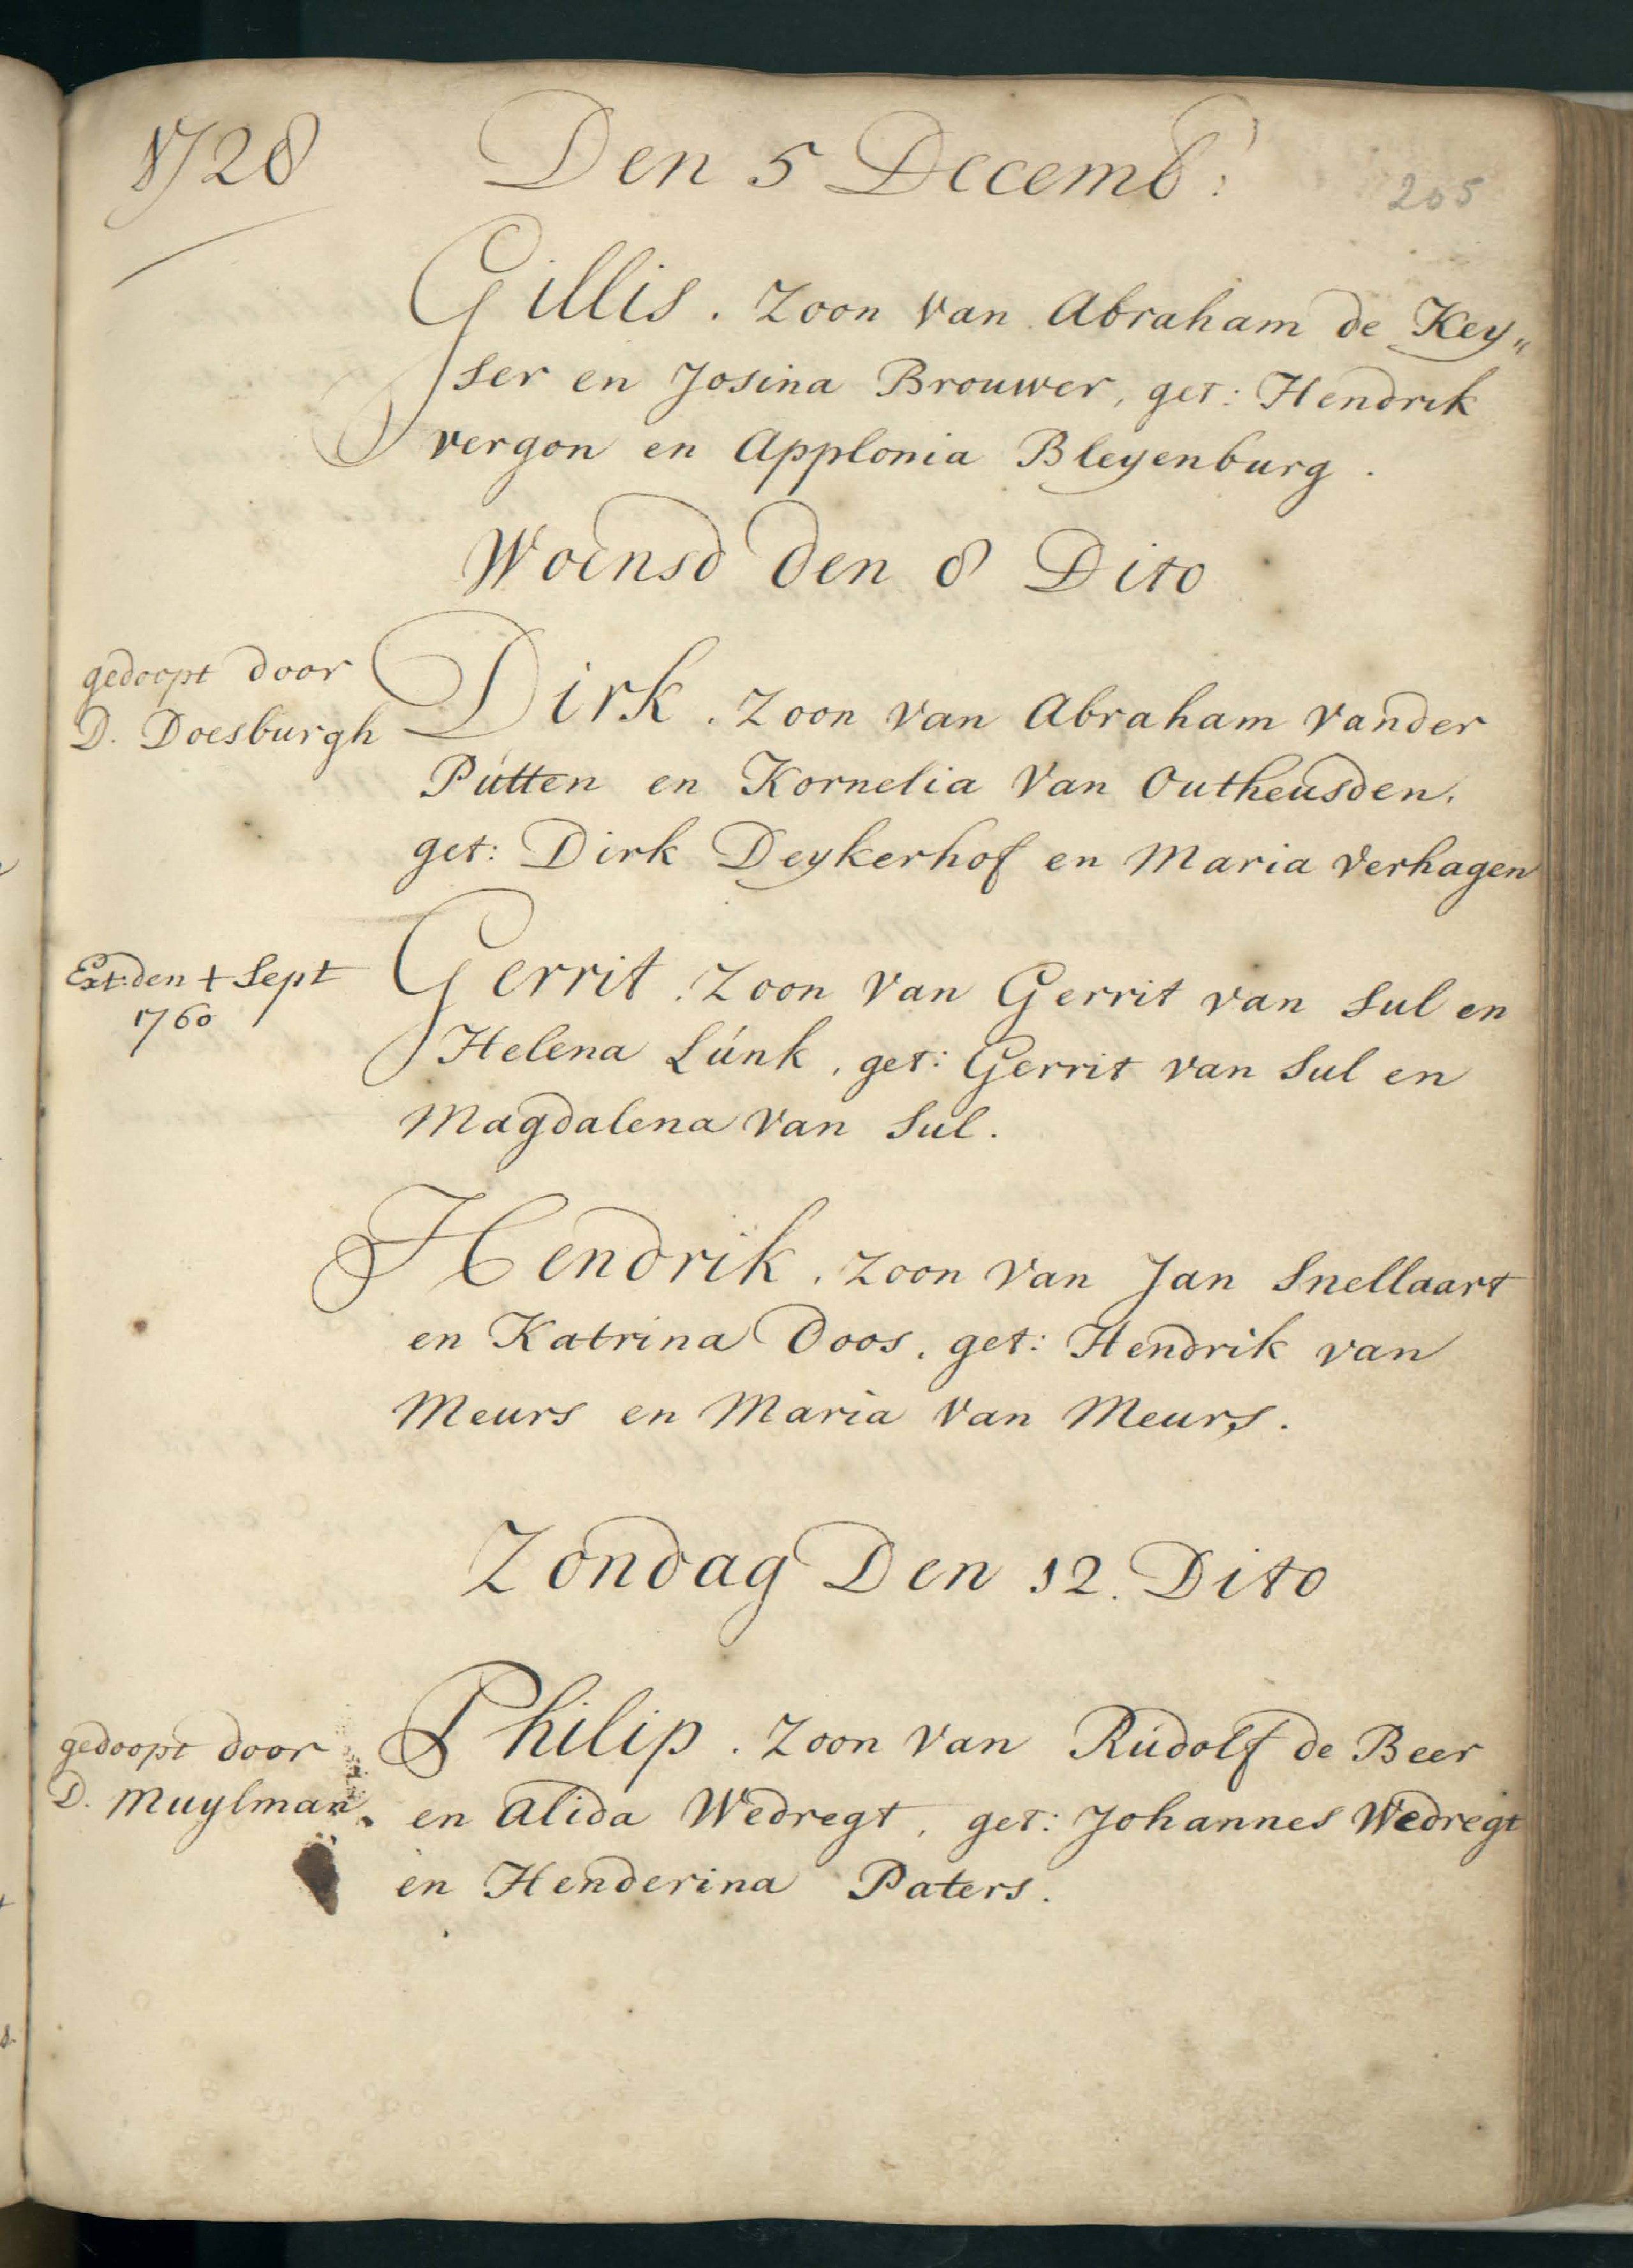 1728
Den 5 Decemb:
205
Gillis. Zoon van Abraham de Key„
ser en Josina Brouwer, get: Hendrik
vergon en Applonia Bleyenburg.
Woensd den 8 Dito
gedoopt door
D. Doesburgh
Dirk. Zoon van Abraham vander
Pútten en Kornelia van Outheusden.
get: Dirk Deykerhof en Maria verhagen
Ext: den + Sept
1760
Gerrit. Zoon van Gerrit van Sul en
Helena Lúnk, get: Gerrit van Sul en
Magdalena van Sul.
Hendrik. Zoon van Jan Snellaart
en Katrina Doos. get: Hendrik van
Meurs en Maria van Meurs.
Zondag Den 12. Dito
gedoopt door
D. Muylman.
Philip. Zoon van Rúdolf de Beer
en Alida Wedregt, get: Johannes Wedregt
en Henderina Paters.